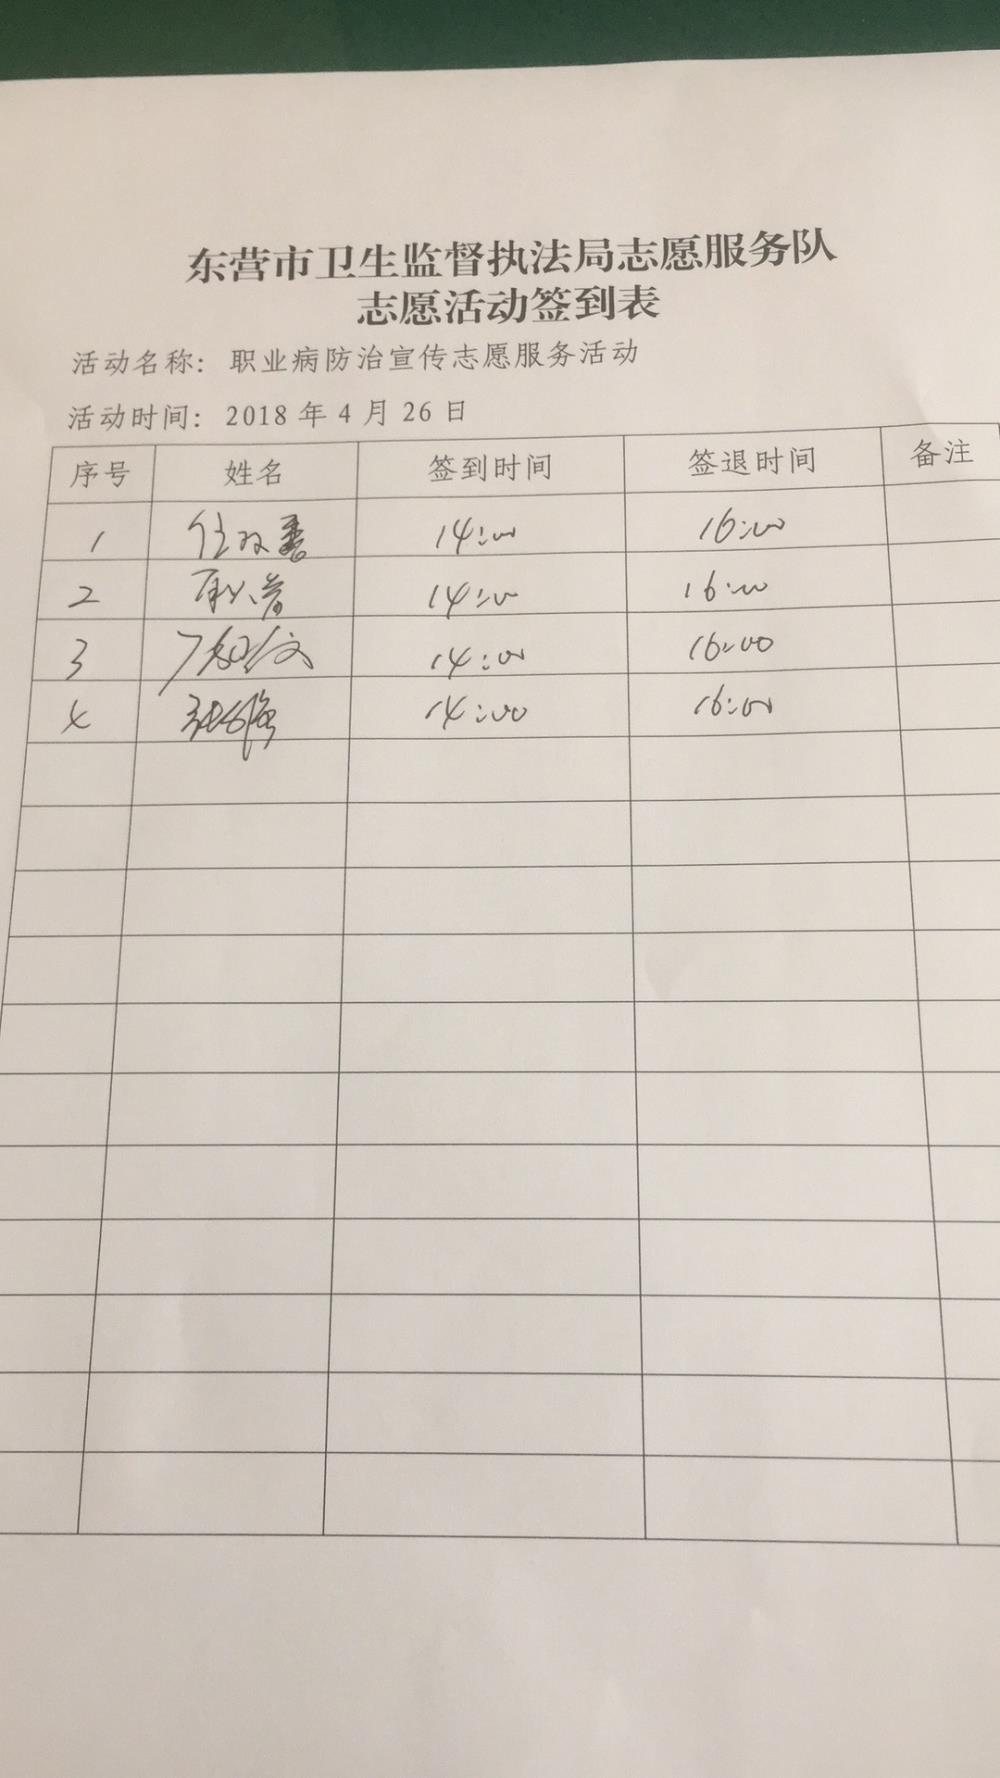 东营市卫生监督执法局志愿服务队
志愿活动签到表
活动名称: 职业病防治宣传志愿服务活动
活动时间: 2018 年 4 月 26 日
序号 姓名 签到时间 签退时间 备注
1 14:00 16:00
2 14:00 16:00
3 14:00 16:00
4 14:00 16:00